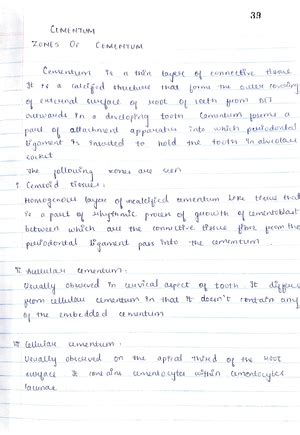 39
CEMENTUM
ZONES OF CEMENTUM
Cementum is a thin layer of connective tissue.
It is a calcified structure that forms the outer covering
of external surface of root of teeth from DEJ
outwards in a developing tooth cementum forms a
part of attachment apparatus into which periodontal
ligament is inserted to hold the tooth in alveolar
socket
The following zones are seen
I. Cemtoid tissues:
Homogenous layer of uncalcified cementum like tissue that
is a part of rhythmic process of growth of cementoblast
between which are the connective tissue fibre from the
periodontal ligament pass into the cementum.
II. Acellular cementum:
Usually observed in cervical aspect of tooth. It differs
from cellular cementum in that it doesn't contain any
of the embedded cementum
III Cellular cementum:
Usually observed on the apical third of the root
surface It contains cementocytes within cementocytes
lacunae